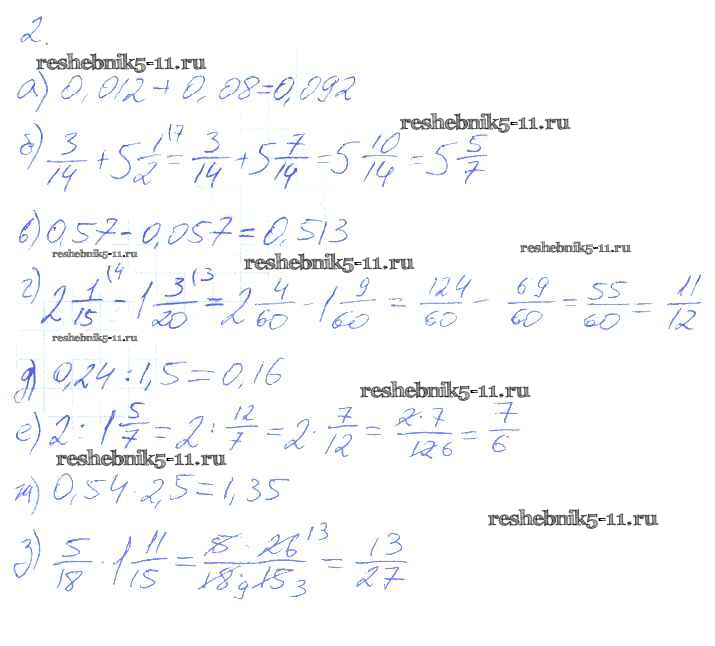 2.
reshebnik5-11.ru
а) 0,012 + 0,08 = 0,092
reshebnik5-11.ru
б) 3/14 + 5 1/2 (7 = 3/14 + 5 7/14 = 5 10/14 = 5 5/7
в) 0,57 - 0,057 = 0,513
reshebnik5-11.ru
reshebnik5-11.ru
reshebnik5-11.ru
г) 2 1/15 (4 - 1 3/20 (3 = 2 4/60 - 1 9/60 = 124/60 - 69/60 = 55/60 = 11/12
reshebnik5-11.ru
д) 0,24 : 1,5 = 0,16
reshebnik5-11.ru
е) 2 : 1 5/7 = 2 : 12/7 = 2 · 7/12 = 2 · 7/12 6 = 7/6
reshebnik5-11.ru
ж) 0,54 · 2,5 = 1,35
reshebnik5-11.ru
з) 5/18 · 1 11/15 = 5 · 26 13/18 9 · 15 3 = 13/27